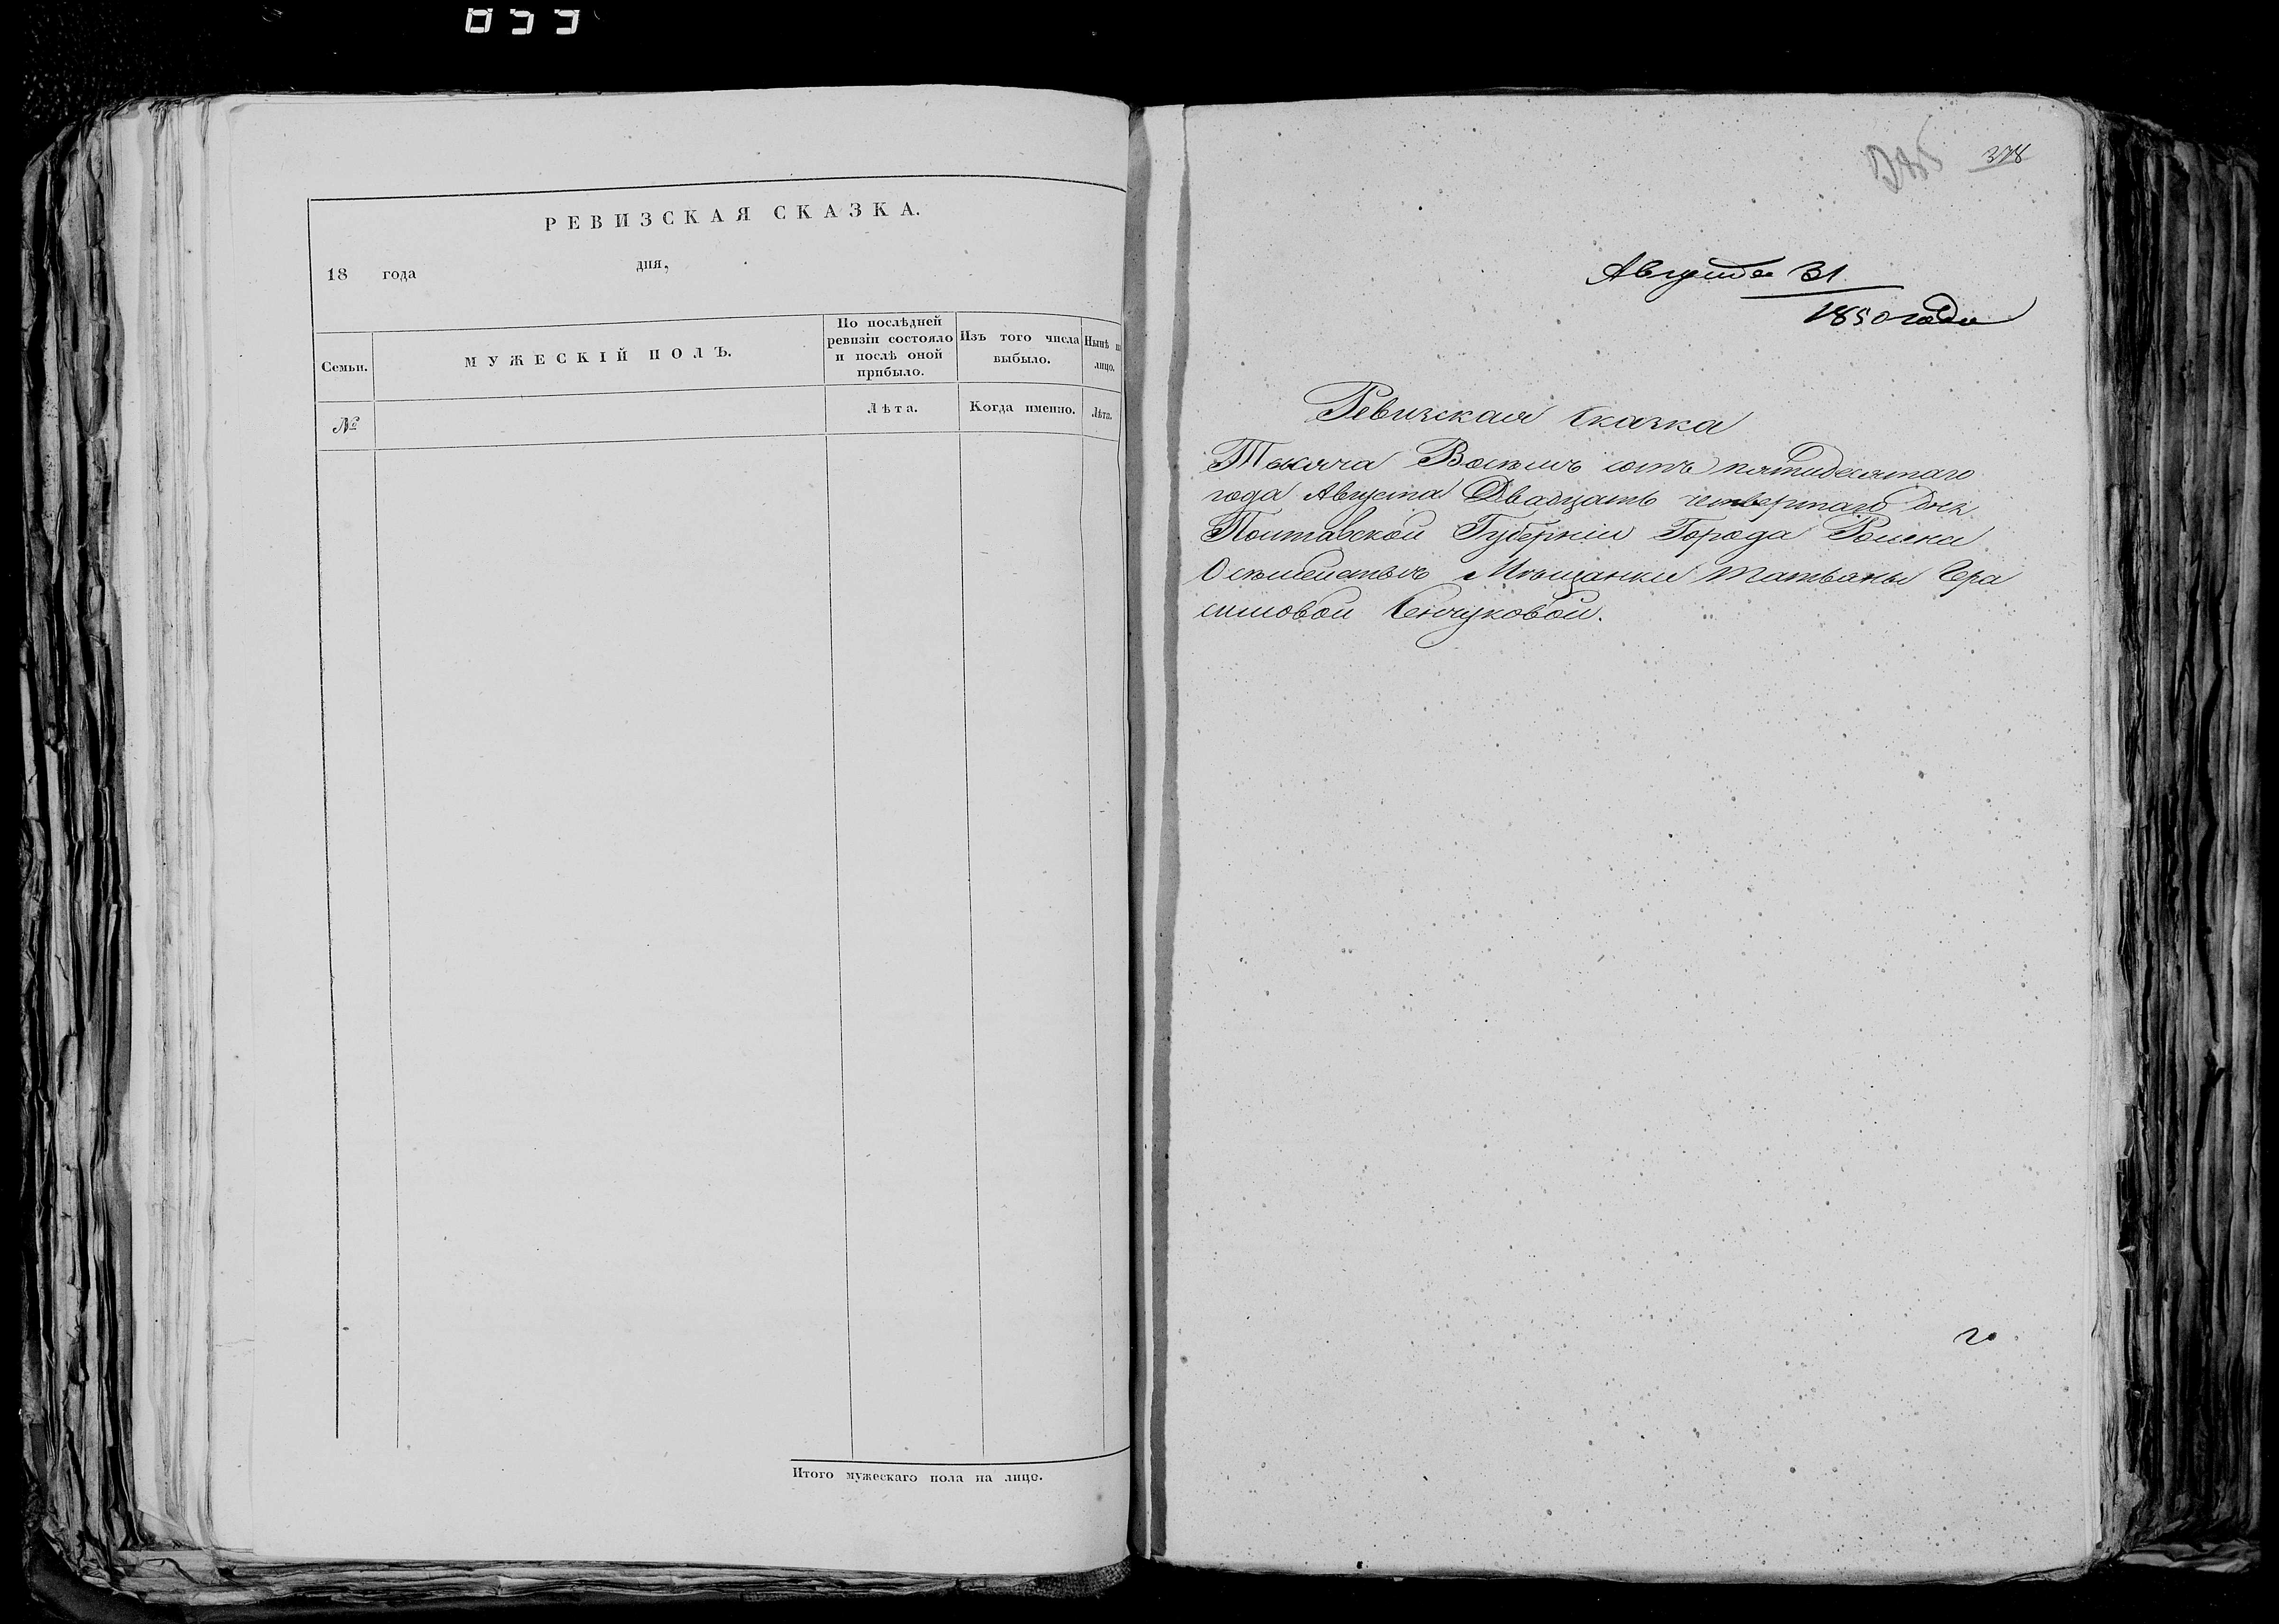 РЕВИЗСКАЯ СКАЗКА.
18 года дня,
Семьи.
МУЖЕСКІЙ ПОЛЪ.
По послѣдней
ревизіи состояло
и послѣ оной
прибыло.
Изъ того числа
выбыло.
Нынѣ н
лицо.
№
Лѣта.
Когда именно.
Лѣта.
Итого мужескаго пола на лицо.
378
Августа 31
1850 года
Ревизская Сказка
Тысяча Восемь сотъ пятидесятаго
года Августа Двадцать четвертаго дня
Полтавской Губерніи Города Ромена
О Мѣщанки Татьяны Гера
симовой Сенчуковой.